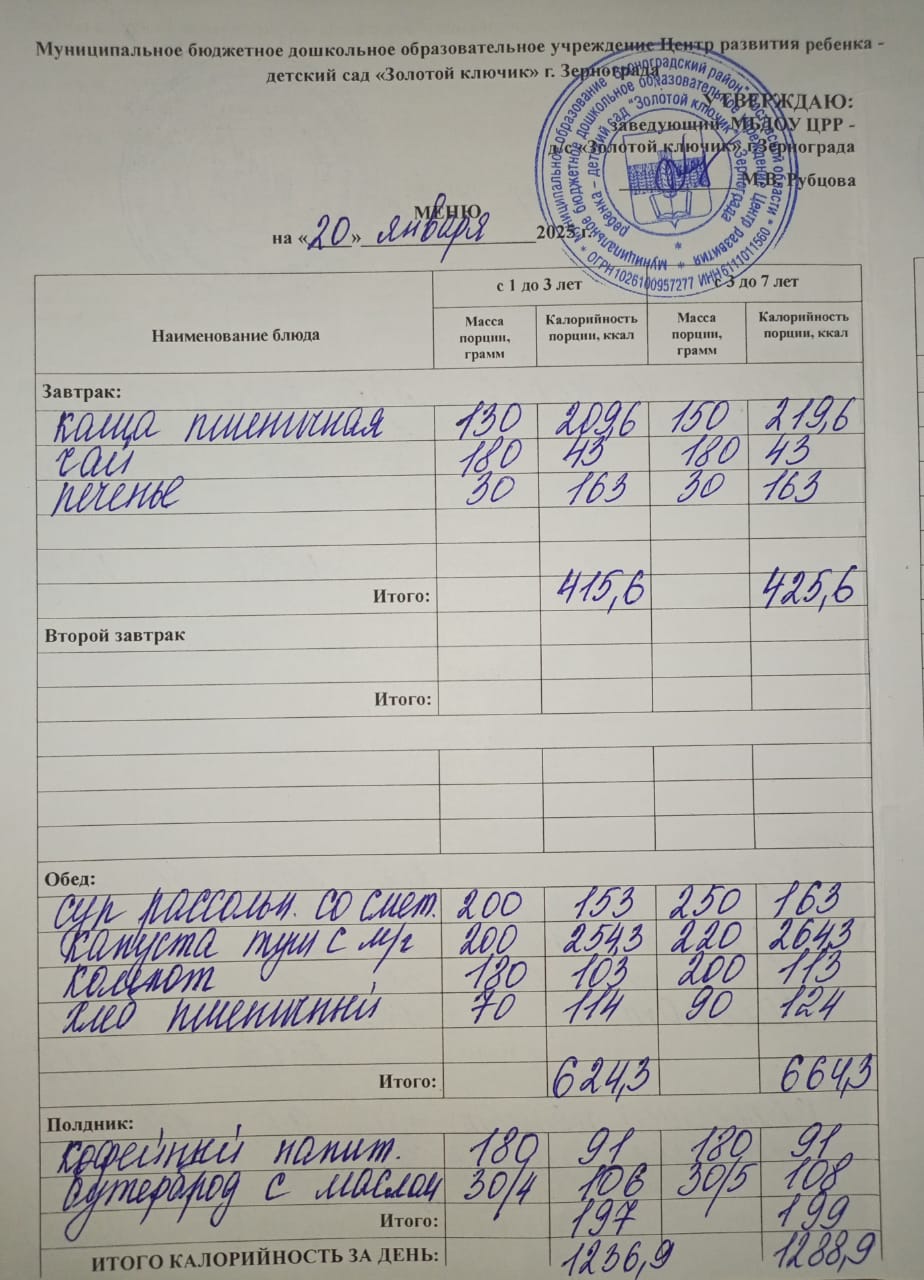 Муниципальное бюджетное дошкольное образовательное учреждение Центр развития ребенка -
детский сад «Золотой ключик» г. Зернограда
УТВЕРЖДАЮ:
заведующий МБДОУ ЦРР -
д/с «Золотой ключик» г.Зернограда
М.В. Рубцова
МЕНЮ
на «20» января 2025 г.
* ОГРН 1026100957277 ИНН 6111011560 *
Муниципальное бюджетное дошкольное образовательное учреждение Центр развития
ребенка - детский сад "Золотой ключик" г. Зернограда
Наименование блюда с 1 до 3 лет с 3 до 7 лет
Масса порции, грамм Калорийность порции, ккал Масса порции, грамм Калорийность порции, ккал
Завтрак:
каша пшеничная 130 209,6 150 219,6
чай 180 43 180 43
печенье 30 163 30 163
Итого: 415,6 425,6
Второй завтрак
Итого:
Обед:
суп рассольн. со смет. 200 153 250 163
капуста туш с м/г 200 254,3 220 264,3
компот 180 103 200 113
хлеб пшеничный 70 114 90 124
Итого: 624,3 664,3
Полдник:
кофейный напит. 180 91 180 91
бутерброд с маслом 30/4 106 30/5 108
Итого: 197 199
ИТОГО КАЛОРИЙНОСТЬ ЗА ДЕНЬ: 1236,9 1288,9